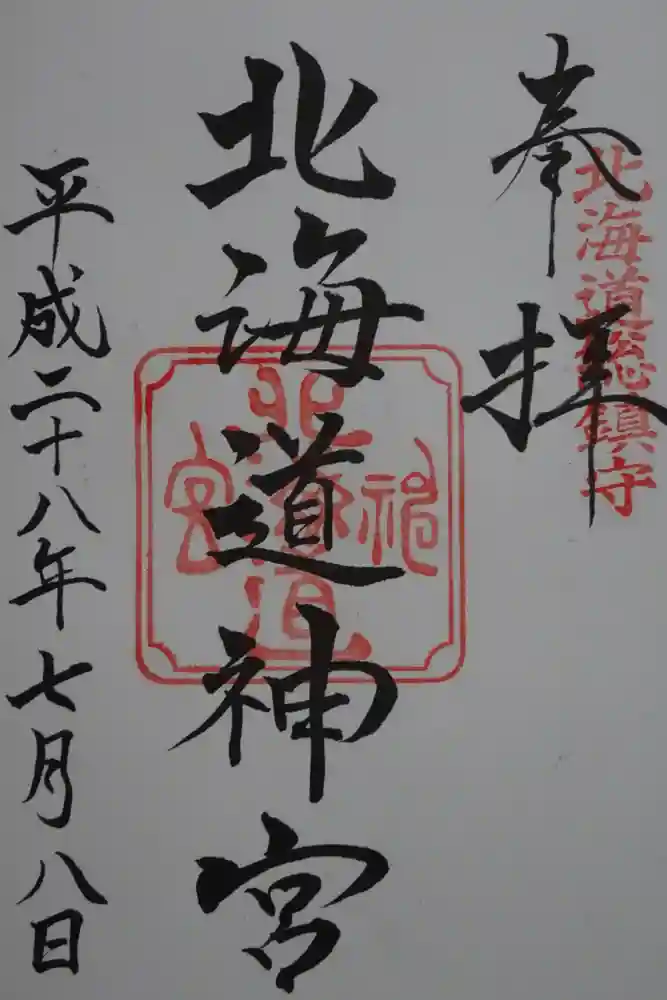 奉拝
北海道総鎮守
北海道神宮
北海道神宮
平成二十八年七月八日